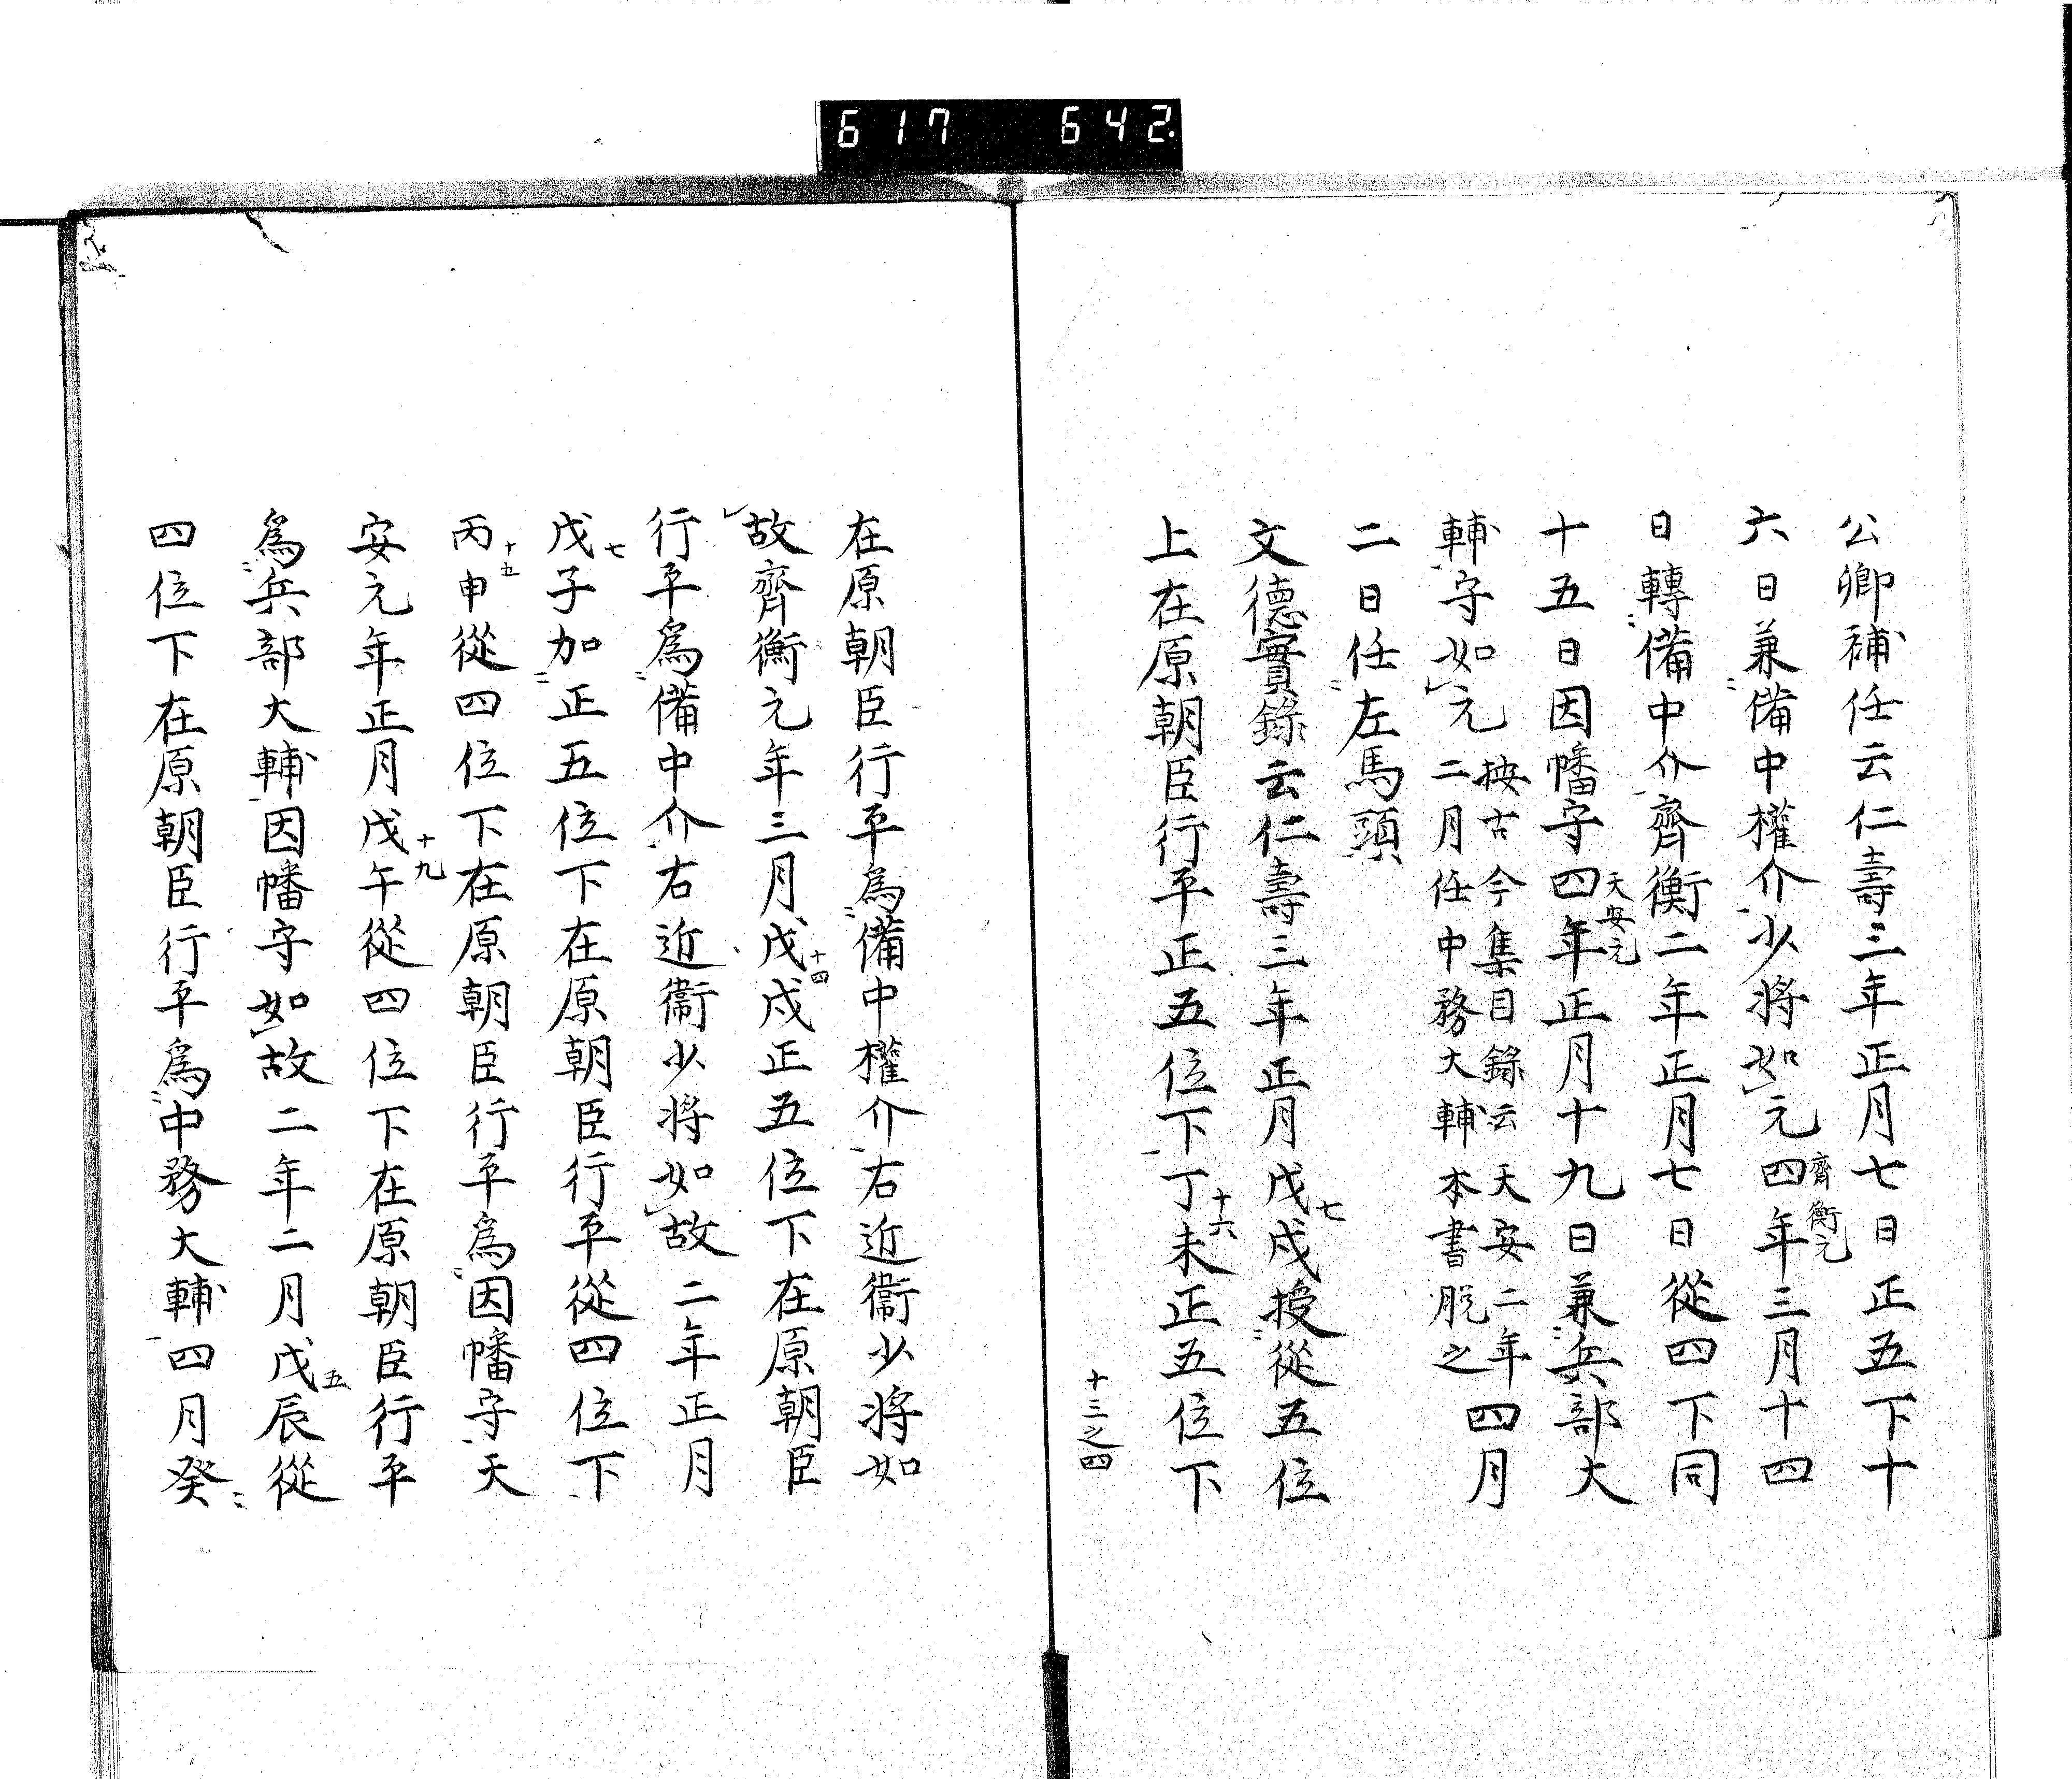 617 642
公卿補任云仁壽三年正月七日正五下十
六日兼備中權介少將如元四年三月十四
齊衡元
日轉備中介齊衡二年正月七日從四下同
十五日因幡守四年正月十九日兼兵部大
天安元
輔守如元按古今集目錄云天安二年四月
二月任中務大輔本書脱之
二日任左馬頭
文德實錄云仁壽三年正月戊戌授從五位
七
上在原朝臣行平正五位下丁未正五位下
十六
十三之四
在原朝臣行平爲備中權介右近衞少將如
故齊衡元年三月戊戌正五位下在原朝臣
十四
行平爲備中介右近衞少將如故二年正月
戊子加正五位下在原朝臣行平從四位下
七
丙申從四位下在原朝臣行平爲因幡守天
十五
安元年正月戊午從四位下在原朝臣行平
十九
爲兵部大輔因幡守如故二年二月戊辰從
五
四位下在原朝臣行平爲中務大輔四月癸